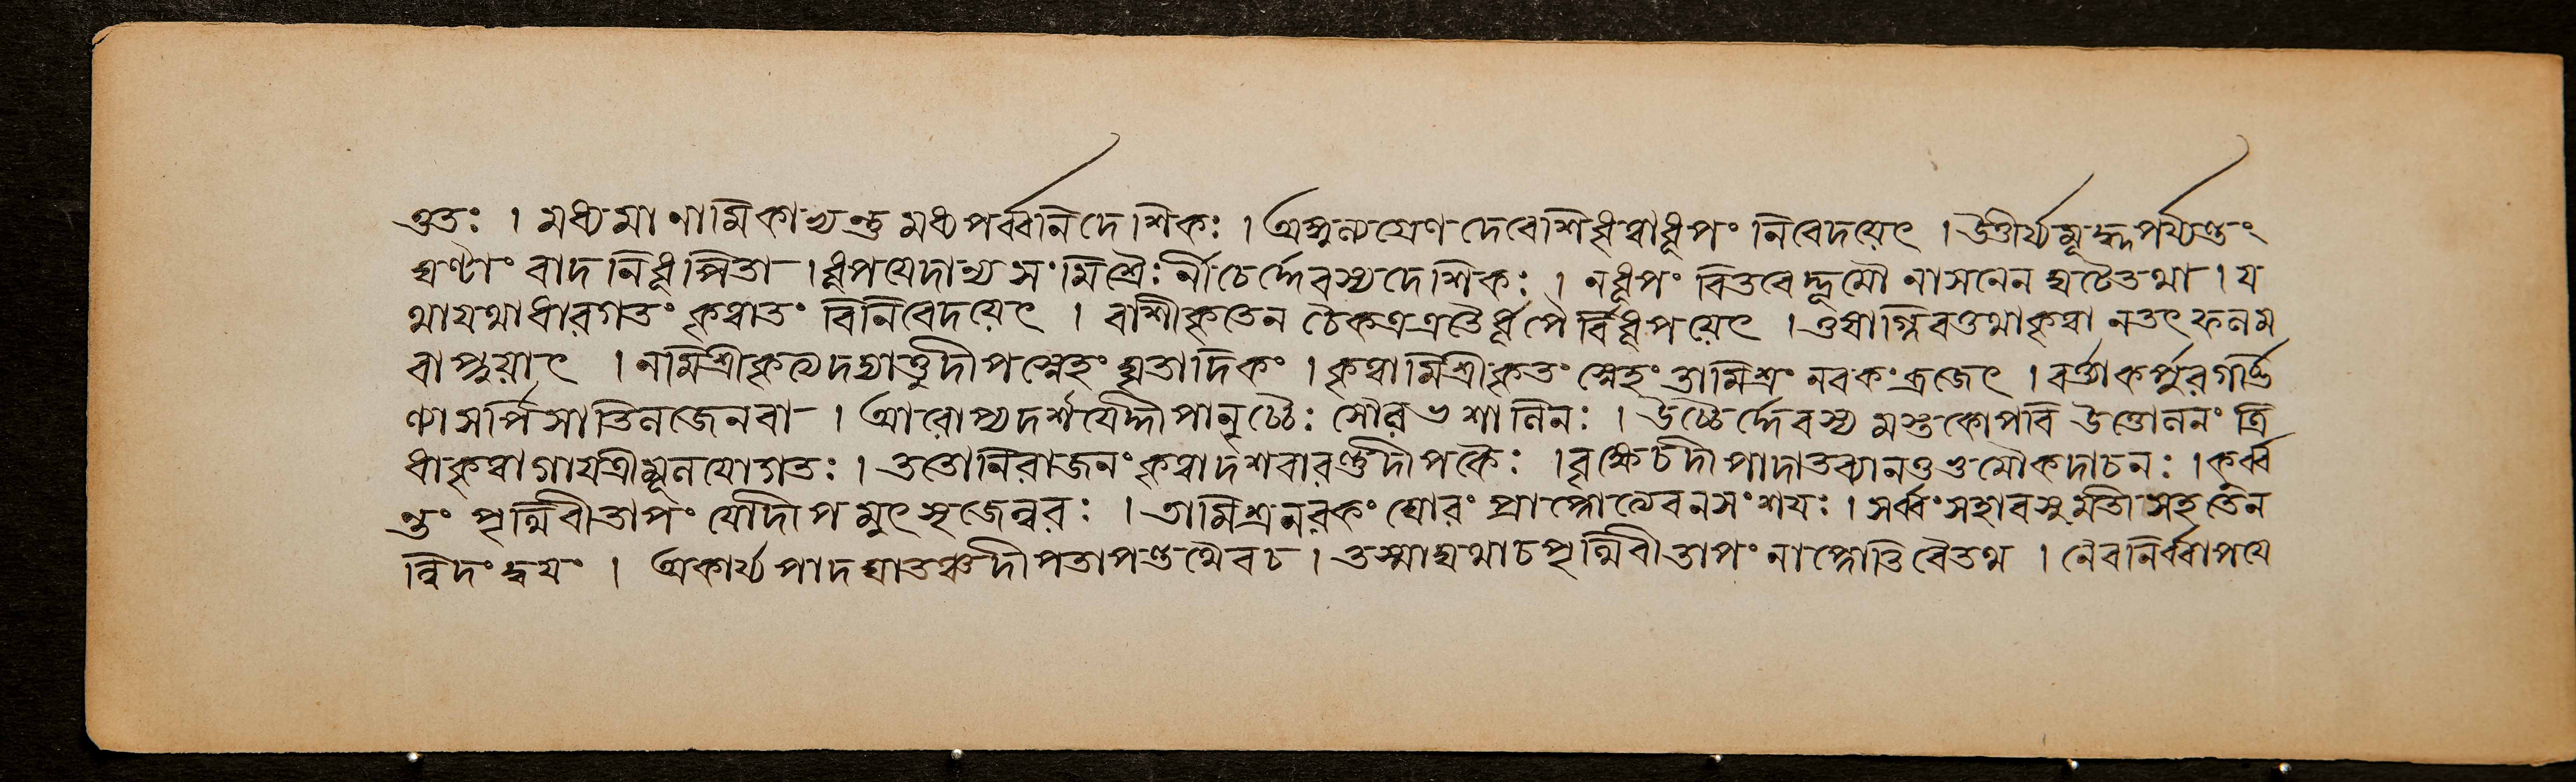 ততঃ । মধ্যমানামিকাখ্যন্তু মধ্যপর্ব্বনিদেশিকঃ । অঙ্গুল্যগ্রেণ দেবেশি ধৃত্বাধূপং নিবেদয়েৎ । উত্তীর্য্যমূর্দ্ধপর্য্যন্তং
ঘণ্টাং বাদনিধূপিতা । ধূপযেদাখ্য সংমিশ্রৈঃ র্নীচৈর্দ্দেবস্য দেশিকঃ । নধূপং বিতরেদ্ভূমৌ নাসনেন ঘটেতথা । য
থাযথাধারগতং কৃত্বাতং বিনিবেদয়েৎ । রাশীকৃতেন চৈকত্র এতৈর্ধূপৈর্বিধূপয়েৎ । তুষাগ্নিবতথাকৃত্বা নতৎফলম
বাপ্নুয়াৎ । নমিশ্রীকৃত্যদদ্যাত্তুদীপস্নেহং ঘৃতাদিকং । কৃত্বামিশ্রীকৃতং স্নেহং তামিশ্রং নরকংব্রজেৎ । বর্ত্ত্যাকর্পূরগর্ভি
ণ্যা সর্পিসাতিলজেনবা । আরোপ্যদর্শযেদ্দীপানুচ্চৈঃ সৌরভশালিনঃ । উচ্চৈর্দ্দেবস্য মস্তকোপরি উত্তোলনং ত্রি
ধাকৃত্বাগাযত্রীমূলযোগতঃ । ততোনিরাজনং কৃত্বাদশবারন্তুদীপকৈঃ । বৃক্ষেচদীপাদাতব্যানতুভূমৌকদাচনঃ । কুর্ব্ব
ন্তং পৃথিবীতাপং যোদীপমুৎসৃজেন্নরঃ । তামিশ্রনরকং ঘোরং প্রাপ্নোত্যেবনসংশযঃ । সর্ব্বংসহাবসুমতী সহতেন
ত্বিদংদ্বযং । অকার্য্যপাদঘাতঞ্চদীপতাপন্তথৈবচ । তস্মাদ্যথাচপৃথিবীতাপং নাপ্নোতিবৈতথ । নৈবনির্ব্বাপযে